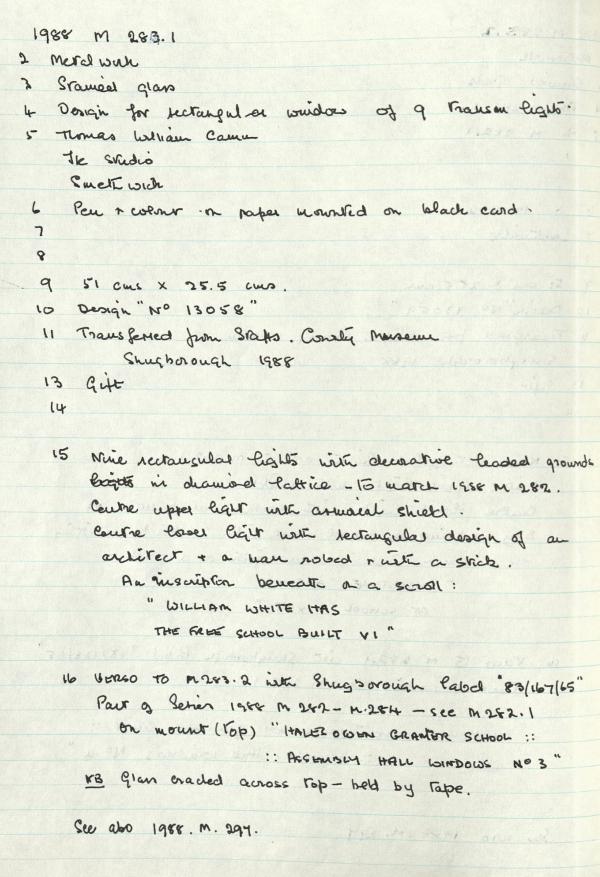 1988 M 283.1
2 Metal work
3 Stained glass
4 Design for rectangular window of 9 transom lights.
5 Thomas William Camm
The Studio
Smethwick
6 Pen + colour on paper mounted on black card.
7
8
9 51 cms x 25.5 cms.
10 Design "No 13058"
11 Transferred from Staffs. County Museum
Shugborough 1988
13 Gift
14
15 Nine rectangular lights with decorative leaded grounds
in diamond lattice - to match 1988 M 282.
Centre upper light with armorial shield.
Centre lower light with rectangular design of an
architect + a man robed + with a stick.
An inscription beneath on a scroll:
"WILLIAM WHITE HAS
THE FREE SCHOOL BUILT VI"
16 VERSO TO M283.2 with Shugborough label "83/167/65"
Part of Series 1988 M 282 - M.284 - see M282.1
On mount (top) "HALESOWEN GRAMMER SCHOOL ::
:: ASSEMBLY HALL WINDOWS No 3"
NB Glass cracked across top - held by tape.
See also 1988. M. 297.